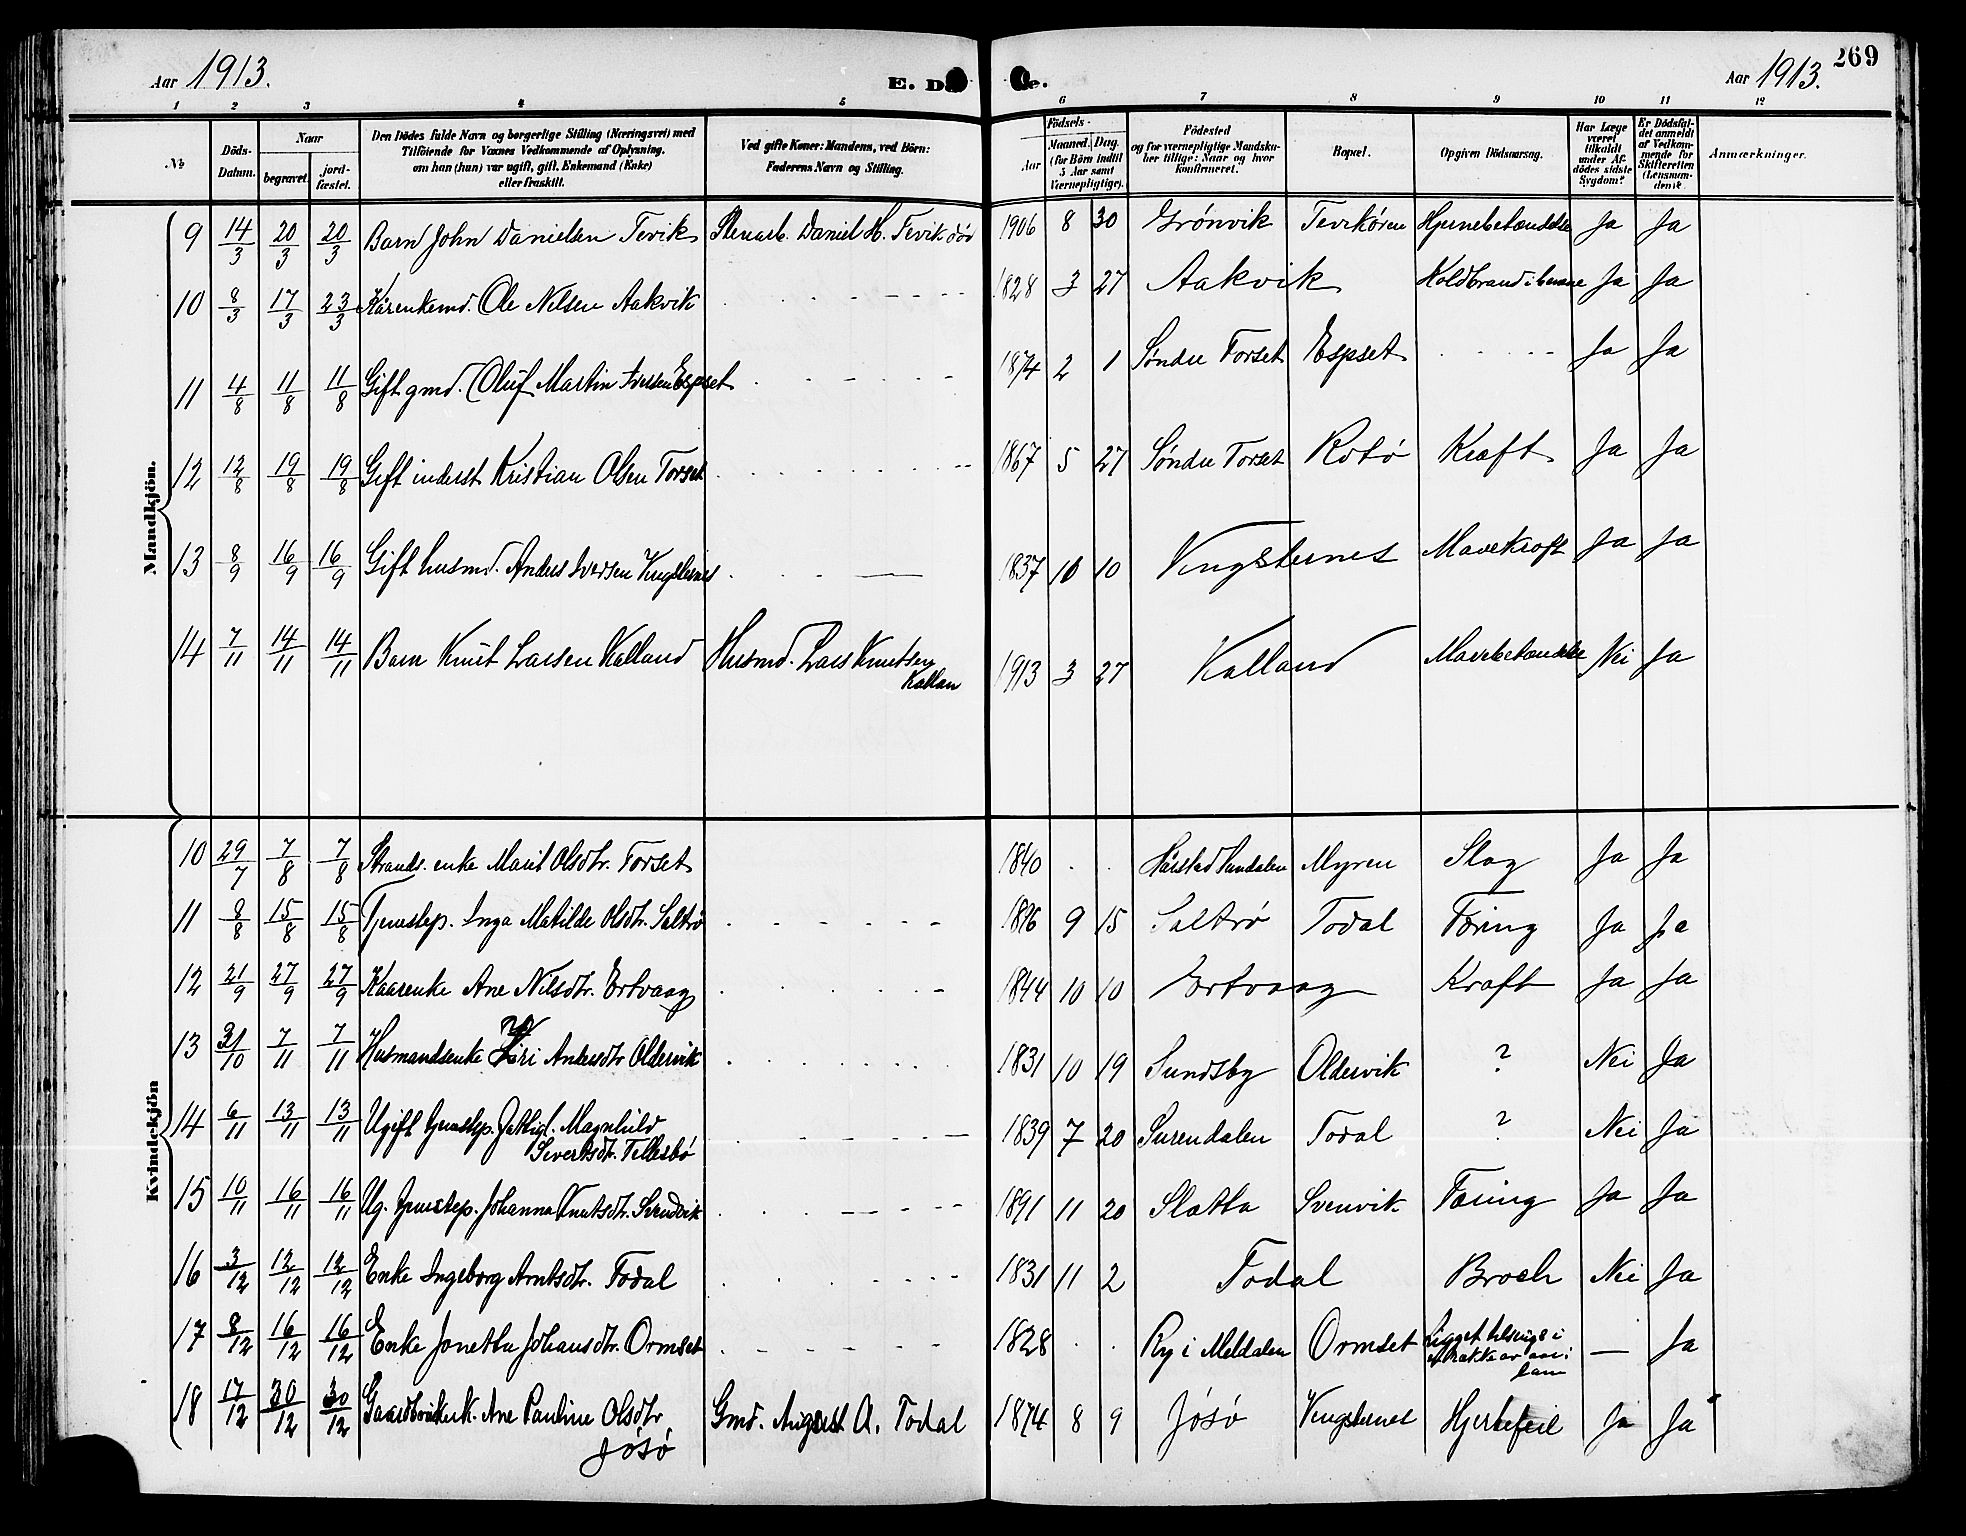 Aar 1913. E. Dö e. Aar 1913. 269
1 2 3 4 5 6 7 8 9 10 11 12
No. Döds-Datum. Naar begravet. jord-fæstet. Den Dödes fulde Navn og borgerlige Stilling (Næringsvei) med Tilföiende for Voxnes Vedkommende af Oplysning, om han (hun) var ugift, gift, Enkemand (Enke) eller fraskilt. Ved gifte Koner: Mandens, ved Börn: Faderens Navn og Stilling. Födsels- Aar Maaned. Dag. (for Börn indtil 5 Aar samt Værnepligtige). Födested og for værnepligtige Mandskaber tillige: Naar og hvor konfirmeret. Bopæl. Opgiven Dödsaarsag. Har Læge været tilkaldt under Afdödes sidste Sygdom? Er Dödsfaldet anmeldt af Vedkommende for Skifteretten (Lensmanden)? Anmærkninger.
Mandkjön.
9 14/3 20/3 20/3 Barn John Danielsen Tevik Stenarb. Daniel H. Tevik 1906 8 30 Grønvik Tevikøren Hjernebetændelse Ja Ja
10 8/3 17/3 23/3 Kårenkemd. Ole Nilsen Aakvik 1828 3 27 Aakvik Koldbrand i benene Ja Ja
11 4/8 11/8 11/8 Gift gmd. Oluf Martin Iversen Espset 1874 2 1 Søndre Torset Espset Ja Ja
12 12/8 19/8 19/8 Gift inderst Kristian Olsen Torset 1867 5 27 Søndre Torset Rotø Kræft Ja Ja
13 8/9 16/9 16/9 Gift husmd. Anders Iversen Vengsternes 1837 10 10 Vengsternes Mavekræft Ja Ja
14 7/11 14/11 14/11 Barn Knut Larsen Kalland Husmd. Lars Knutsen Kallan 1913 3 27 Kalland Mavebetændelse Nei Ja
Kvindekjön
10 29/7 7/8 7/8 Strands. enke Marit Olsdtr. Torset 1840 . . Myren Slag Ja Ja
11 8/8 15/8 15/8 Tjenestep. Inga Matilde Olsdtr. Saltrø 1896 9 15 Saltrø Todal Tæring Ja Ja
12 21/9 27/9 27/9 Kaarenke Ane Nilsdtr. Ertvaag 1844 10 10 Ertvaag Kræft Ja Ja
13 31/10 7/11 7/11 Husmandsenke Kari Andersdtr Oldervik 1831 10 19 Sundsby Oldervik ? Nei Ja
14 6/11 13/11 13/11 Ugift tjenestep. Magnhild
Sivertsdtr. Tellesbø 1839 7 20 Surendalen Todal ? Nei Ja
15 10/11 16/11 16/11 Ug. tjenestep. Johanna Knutsdtr. Svendvik 1891 11 20 Slatta Svenvik Tæring Ja Ja
16 3/12 12/12 12/12 Enke Ingeborg Arntsdtr. Todal 1831 11 2 Todal Broch Nei Ja
17 8/12 16/12 16/12 Enke Jonetta Johansdtr. Ormset 1828 . . Ry i Meldalen Ormset Ligget tilsengs i en række av aar: lam — Ja
18 17/12 30/12 30/12 Gaardbrukerk. Ane Pauline Olsdtr Jøsø Gmd. August A. Todal 1874 8 9 Jøsø Vengsternes Hjertefeil Ja Ja